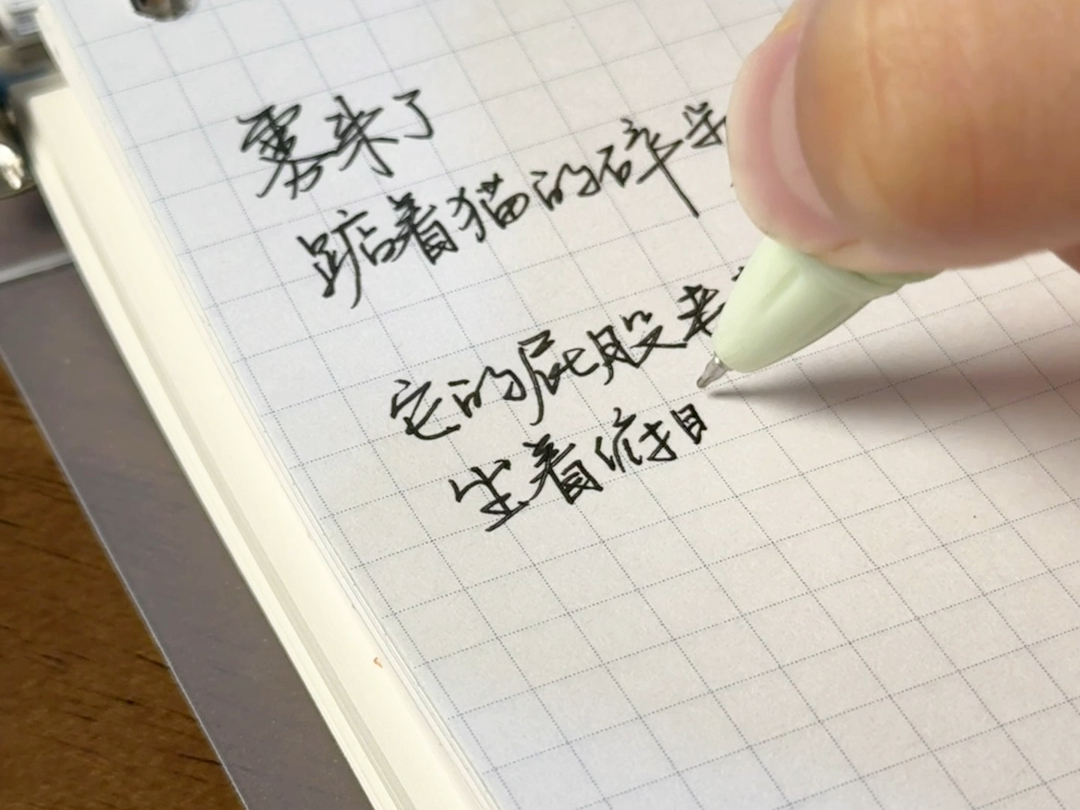 雾来了
踮着猫的碎步
它的屁股来
坐着俯